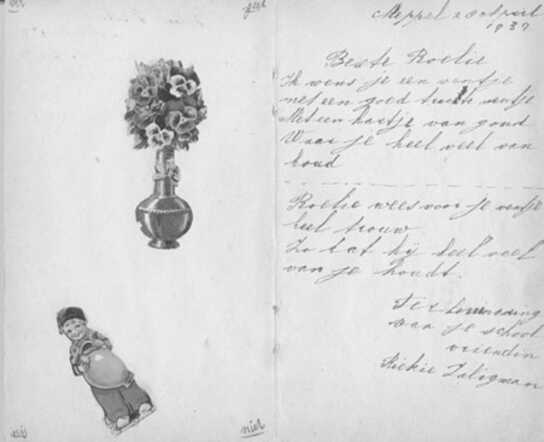 Meppel 20 April
1937
Beste Roelie
Ik wens je een ventje
met een goed tractementje
Met een hartje van goud
Waar je heel veel van
houd
Roelie wees voor je ventje
heel trouw
Zo dat hij heel veel
van je houdt.
Ter herinnering
van je school
vriendin
Riekie Zaligman
niet